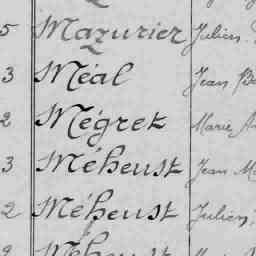 5 Mazurier Julien
3 Méal Jean
2 Mégret Marie
3 Méheust Jean
2 Méheust Julien
Méheust